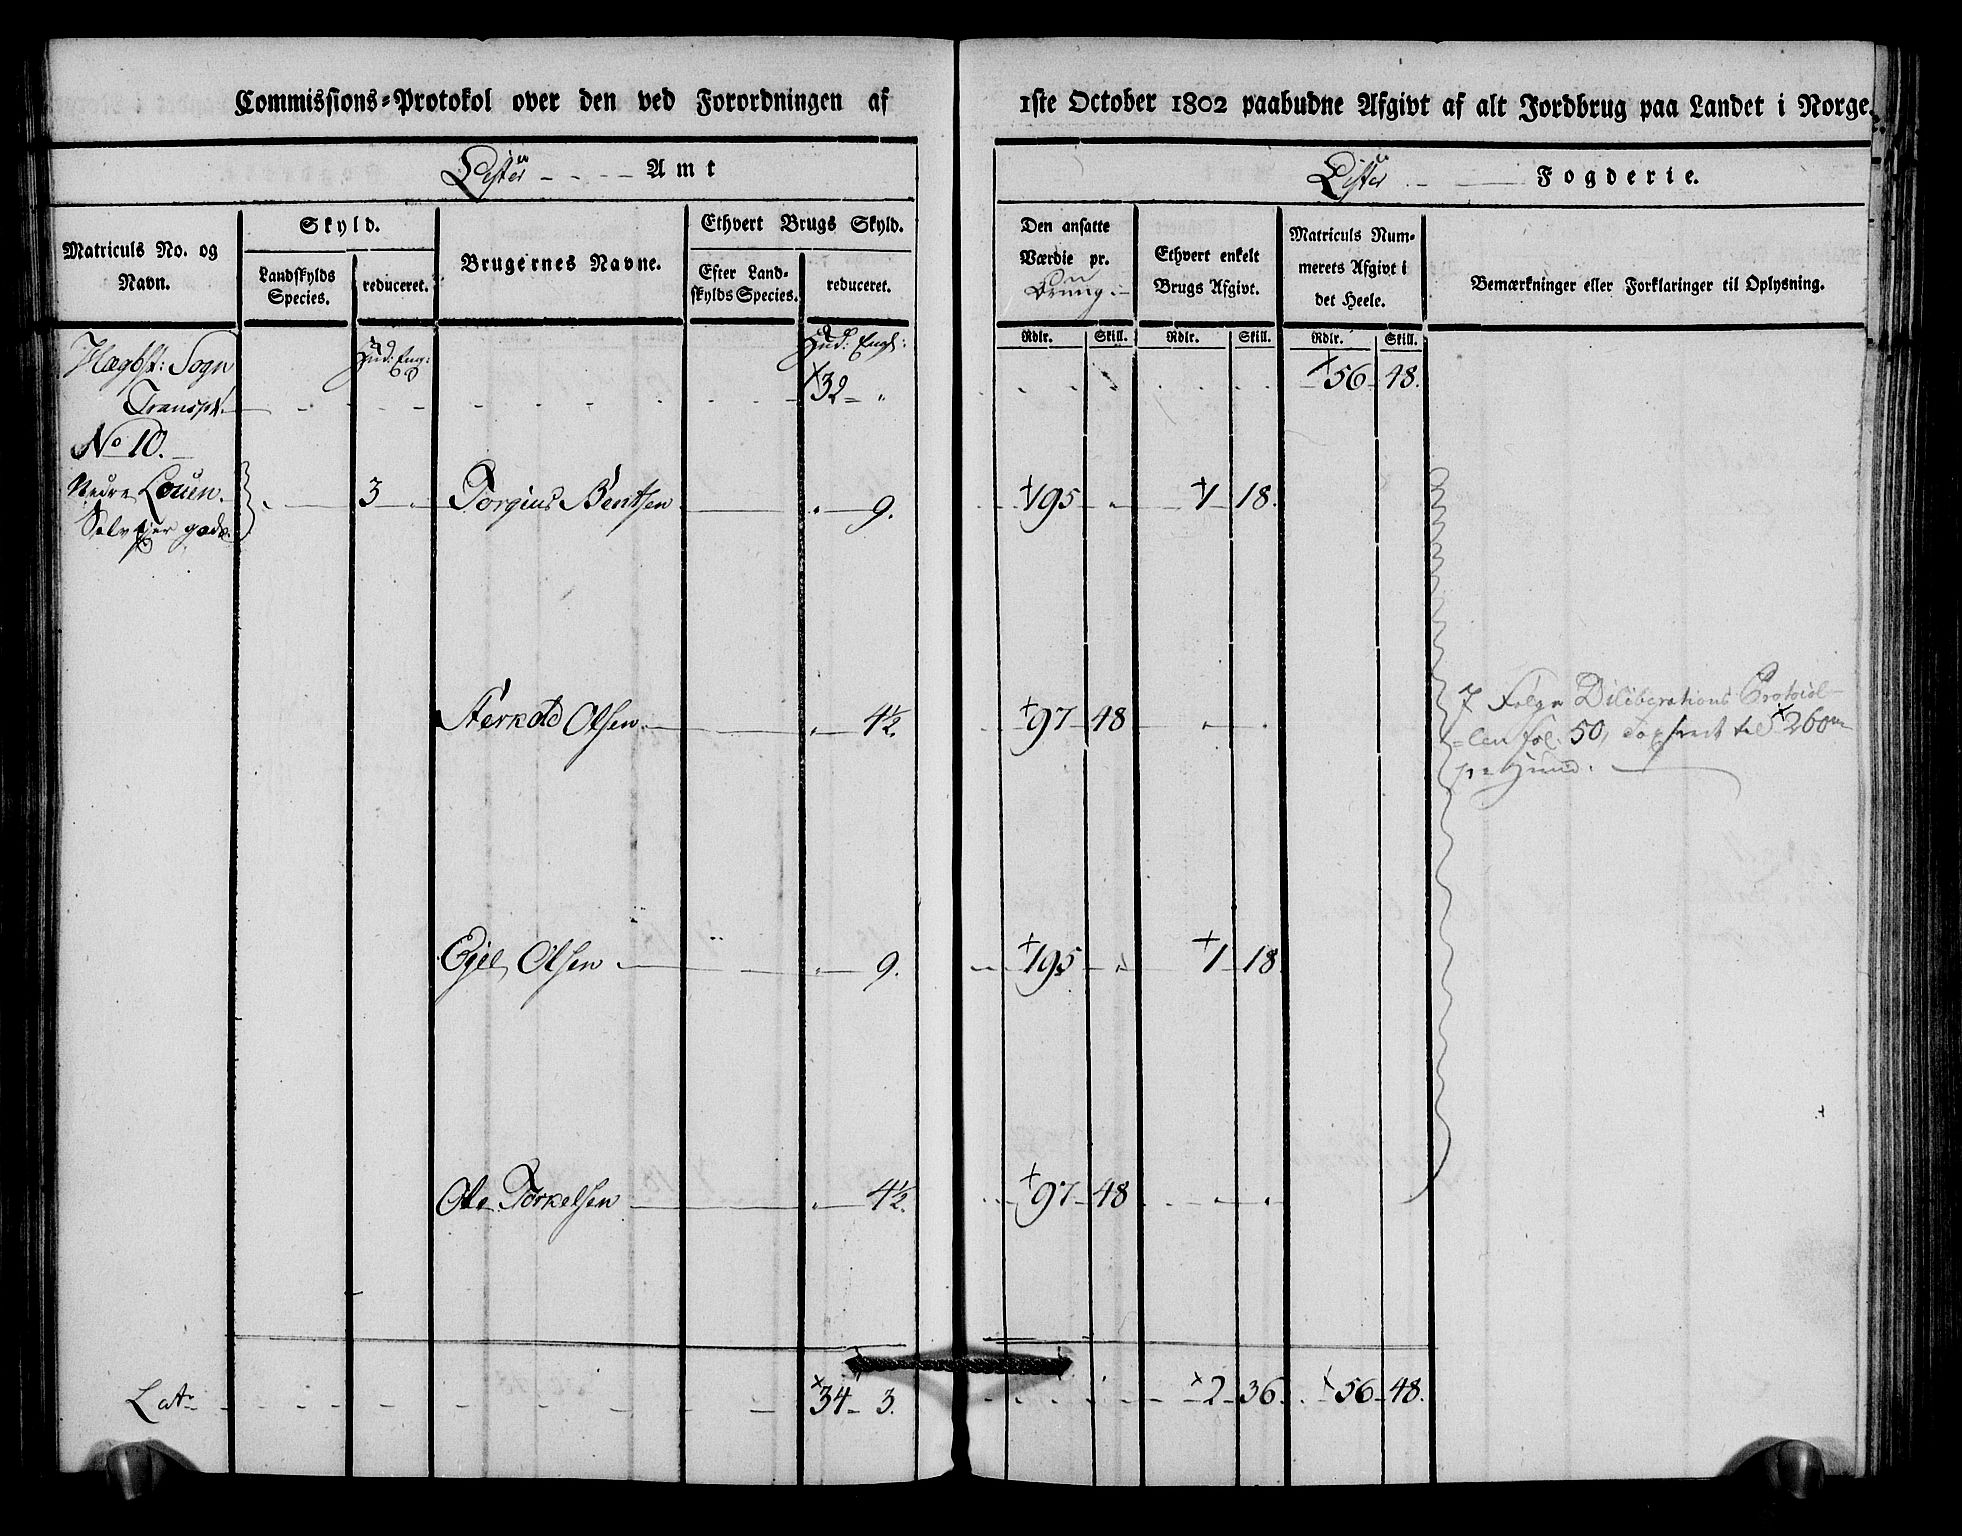 Commissions-Protokol over den ved Forordningen af 1ste October 1802 paabudne Afgivt af alt Jordbrug paa Landet i Norge.
Lister Amt
Lister Fogderie.
Matriculs No. og Navn.
Skyld.
Landskylds Species.
reduceret.
Brugernes Navne.
Ethvert Brugs Skyld.
Efter Landskylds Species.
reduceret.
Den ansatte Værdie pr. Brug
Ethvert enkelt Brugs Afgivt.
Matriculs Nummerets Afgivt i det Heele.
Bemærkninger eller Forklaringer til Oplysning.
Rdlr. Skill. Rdlr. Skill. Rdlr. Skill.
Hægbst: Sogn Hud: Eng: Hud: Engl:
Transpt. 32 " 56 48.
No 10.
Nedre Louen. 3 Torgius Bentsen " 9. 195 " 1 18.
Selv eier gods.
Sterkold Olsen. " 4½. 97 48 " "
I Følge Deliberations Protocol-
len fol. 50, opført til 260
pr Hund.
Egel Olsen " 9. 195 " 1 18.
Ole Torkelsen " 4½. 97 48 " "
Lat. 34 3. 2 36 56 48.